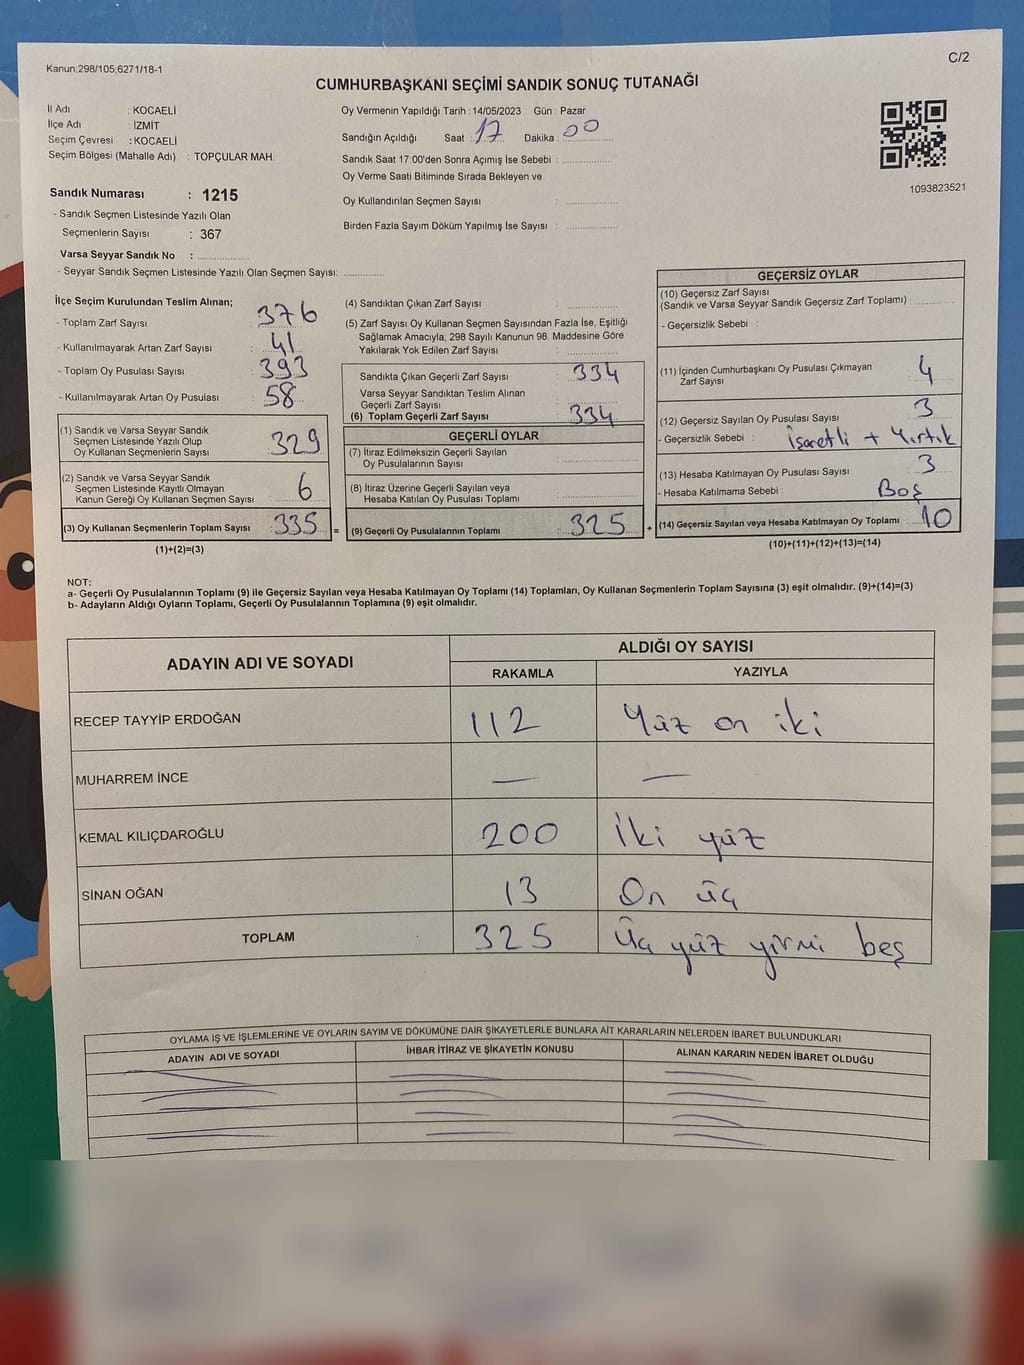 Kanun;298/105;6271/18-1
C/2
CUMHURBAŞKANI SEÇİMİ SANDIK SONUÇ TUTANAĞI
İl Adı : KOCAELİ
İlçe Adı : İZMİT
Seçim Çevresi : KOCAELİ
Seçim Bölgesi (Mahalle Adı) : TOPÇULAR MAH.
Oy Vermenin Yapıldığı Tarih : 14/05/2023 Gün : Pazar
Sandığın Açıldığı Saat : 17 Dakika : 00
Sandık Saat 17:00'den Sonra Açımış İse Sebebi :
Oy Verme Saati Bitiminde Sırada Bekleyen ve
Oy Kullandırılan Seçmen Sayısı :
Birden Fazla Sayım Döküm Yapılmış İse Sayısı :
1093823521
Sandık Numarası : 1215
- Sandık Seçmen Listesinde Yazılı Olan
Seçmenlerin Sayısı : 367
Varsa Seyyar Sandık No :
- Seyyar Sandık Seçmen Listesinde Yazılı Olan Seçmen Sayısı:
İlçe Seçim Kurulundan Teslim Alınan;
- Toplam Zarf Sayısı : 376
- Kullanılmayarak Artan Zarf Sayısı : 41
- Toplam Oy Pusulası Sayısı : 393
- Kullanılmayarak Artan Oy Pusulası : 58
(1) Sandık ve Varsa Seyyar Sandık
Seçmen Listesinde Yazılı Olup
Oy Kullanan Seçmenlerin Sayısı : 329
(2) Sandık ve Varsa Seyyar Sandık
Seçmen Listesinde Kayıtlı Olmayan
Kanun Gereği Oy Kullanan Seçmen Sayısı : 6
(3) Oy Kullanan Seçmenlerin Toplam Sayısı : 335 =
(1)+(2)=(3)
(4) Sandıktan Çıkan Zarf Sayısı :
(5) Zarf Sayısı Oy Kullanan Seçmen Sayısından Fazla İse, Eşitliği
Sağlamak Amacıyla; 298 Sayılı Kanunun 98. Maddesine Göre
Yakılarak Yok Edilen Zarf Sayısı :
Sandıkta Çıkan Geçerli Zarf Sayısı : 334
Varsa Seyyar Sandıktan Teslim Alınan
Geçerli Zarf Sayısı :
(6) Toplam Geçerli Zarf Sayısı : 334
GEÇERLİ OYLAR
(7) İtiraz Edilmeksizin Geçerli Sayılan
Oy Pusulalarının Sayısı :
(8) İtiraz Üzerine Geçerli Sayılan veya
Hesaba Katılan Oy Pusulası Toplamı :
(9) Geçerli Oy Pusulalarının Toplamı : 325 +
GEÇERSİZ OYLAR
(10) Geçersiz Zarf Sayısı
(Sandık ve Varsa Seyyar Sandık Geçersiz Zarf Toplamı) :
- Geçersizlik Sebebi :
(11) İçinden Cumhurbaşkanı Oy Pusulası Çıkmayan
Zarf Sayısı : 4
(12) Geçersiz Sayılan Oy Pusulası Sayısı : 3
- Geçersizlik Sebebi : İşaretli + Yırtık
(13) Hesaba Katılmayan Oy Pusulası Sayısı : 3
- Hesaba Katılmama Sebebi : Boş
(14) Geçersiz Sayılan veya Hesaba Katılmayan Oy Toplamı : 10
(10)+(11)+(12)+(13)=(14)
NOT:
a- Geçerli Oy Pusulalarının Toplamı (9) ile Geçersiz Sayılan veya Hesaba Katılmayan Oy Toplamı (14) Toplamları, Oy Kullanan Seçmenlerin Toplam Sayısına (3) eşit olmalıdır. (9)+(14)=(3)
b- Adayların Aldığı Oyların Toplamı, Geçerli Oy Pusulalarının Toplamına (9) eşit olmalıdır.
ADAYIN ADI VE SOYADI
ALDIĞI OY SAYISI
RAKAMLA YAZIYLA
RECEP TAYYİP ERDOĞAN 112 Yüz on iki
MUHARREM İNCE — —
KEMAL KILIÇDAROĞLU 200 İki yüz
SİNAN OĞAN 13 On üç
TOPLAM 325 Üç yüz yirmi beş
OYLAMA İŞ VE İŞLEMLERİNE VE OYLARIN SAYIM VE DÖKÜMÜNE DAİR ŞİKAYETLERLE BUNLARA AİT KARARLARIN NELERDEN İBARET BULUNDUKLARI
ADAYIN ADI VE SOYADI İHBAR İTİRAZ VE ŞİKAYETİN KONUSU ALINAN KARARIN NEDEN İBARET OLDUĞU